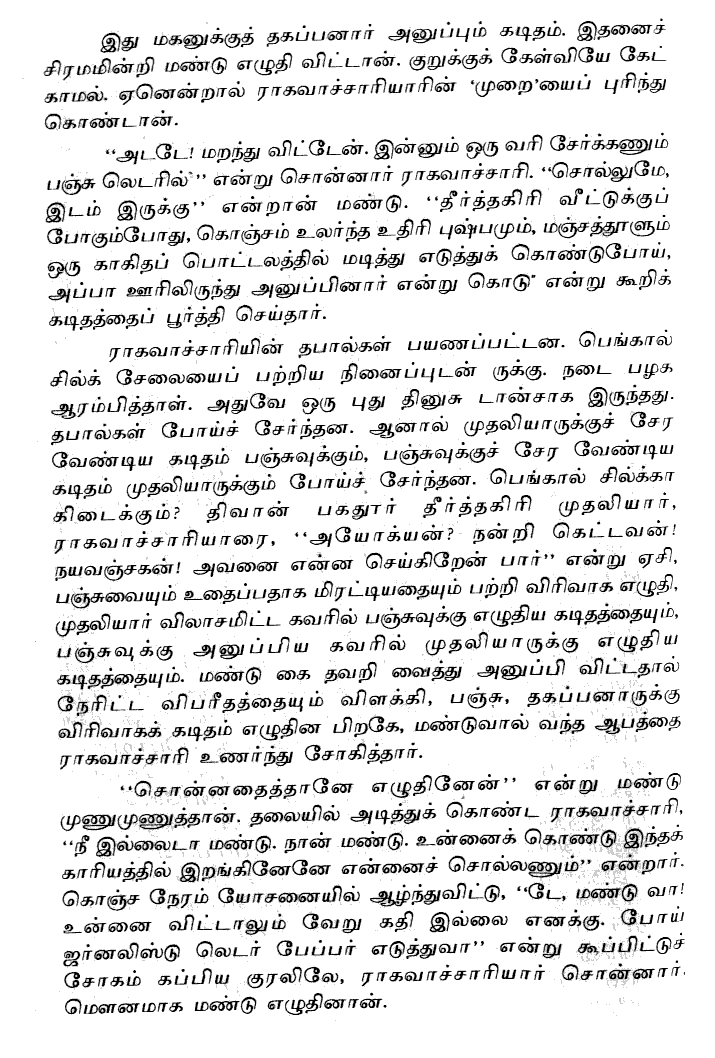 இது மகனுக்குத் தகப்பனார் அனுப்பும் கடிதம். இதனைச்
சிரமமின்றி மண்டு எழுதி விட்டான். குறுக்குக் கேள்வியே கேட்
காமல். ஏனென்றால் ராகவாச்சாரியாரின் ‘முறை’யைப் புரிந்து
கொண்டான்.
‘‘அடடே! மறந்து விட்டேன். இன்னும் ஒரு வரி சேர்க்கணும்
பஞ்சு லெடரில்’’ என்று சொன்னார் ராகவாச்சாரி. ‘‘சொல்லுமே,
இடம் இருக்கு’’ என்றான் மண்டு. ‘‘தீர்த்தகிரி வீட்டுக்குப்
போகும்போது, கொஞ்சம் உலர்ந்த உதிரி புஷ்பமும், மஞ்சத்தூளும்
ஒரு காகிதப் பொட்டலத்தில் மடித்து எடுத்துக் கொண்டுபோய்,
அப்பா ஊரிலிருந்து அனுப்பினார் என்று கொடு" என்று கூறிக்
கடிதத்தைப் பூர்த்தி செய்தார்.
ராகவாச்சாரியின் தபால்கள் பயணப்பட்டன. பெங்கால்
சில்க் சேலையைப் பற்றிய நினைப்புடன் ருக்கு. நடை பழக
ஆரம்பித்தாள். அதுவே ஒரு புது தினுசு டான்சாக இருந்தது.
தபால்கள் போய்ச் சேர்ந்தன. ஆனால் முதலியாருக்குச் சேர
வேண்டிய கடிதம் பஞ்சுவுக்கும், பஞ்சுவுக்குச் சேர வேண்டிய
கடிதம் முதலியாருக்கும் போய்ச் சேர்ந்தன. பெங்கால் சில்க்கா
கிடைக்கும்? திவான் பகதூர் தீர்த்தகிரி முதலியார்,
ராகவாச்சாரியாரை, ‘‘அயோக்யன்? நன்றி கெட்டவன்!
நயவஞ்சகன்! அவனை என்ன செய்கிறேன் பார்’’ என்று ஏசி,
பஞ்சுவையும் உதைப்பதாக மிரட்டியதையும் பற்றி விரிவாக எழுதி,
முதலியார் விலாசமிட்ட கவரில் பஞ்சுவுக்கு எழுதிய கடிதத்தையும்,
பஞ்சுவுக்கு அனுப்பிய கவரில் முதலியாருக்கு எழுதிய
கடிதத்தையும். மண்டு கை தவறி வைத்து அனுப்பி விட்டதால்
நேரிட்ட விபரீதத்தையும் விளக்கி, பஞ்சு, தகப்பனாருக்கு
விரிவாகக் கடிதம் எழுதின பிறகே, மண்டுவால் வந்த ஆபத்தை
ராகவாச்சாரி உணர்ந்து சோகித்தார்.
‘‘சொன்னதைத்தானே எழுதினேன்’’ என்று மண்டு
முணுமுணுத்தான். தலையில் அடித்துக் கொண்ட ராகவாச்சாரி,
‘‘நீ இல்லைடா மண்டு. நான் மண்டு. உன்னைக் கொண்டு இந்தக்
காரியத்தில் இறங்கினேனே என்னைச் சொல்லணும்’’ என்றார்.
கொஞ்ச நேரம் யோசனையில் ஆழ்ந்துவிட்டு, ‘‘டே, மண்டு வா!
உன்னை விட்டாலும் வேறு கதி இல்லை எனக்கு. போய்
ஜர்னலிஸ்டு லெடர் பேப்பர் எடுத்துவா’’ என்று கூப்பிட்டுச்
சோகம் கப்பிய குரலிலே, ராகவாச்சாரியார் சொன்னார்.
மௌனமாக மண்டு எழுதினான்.